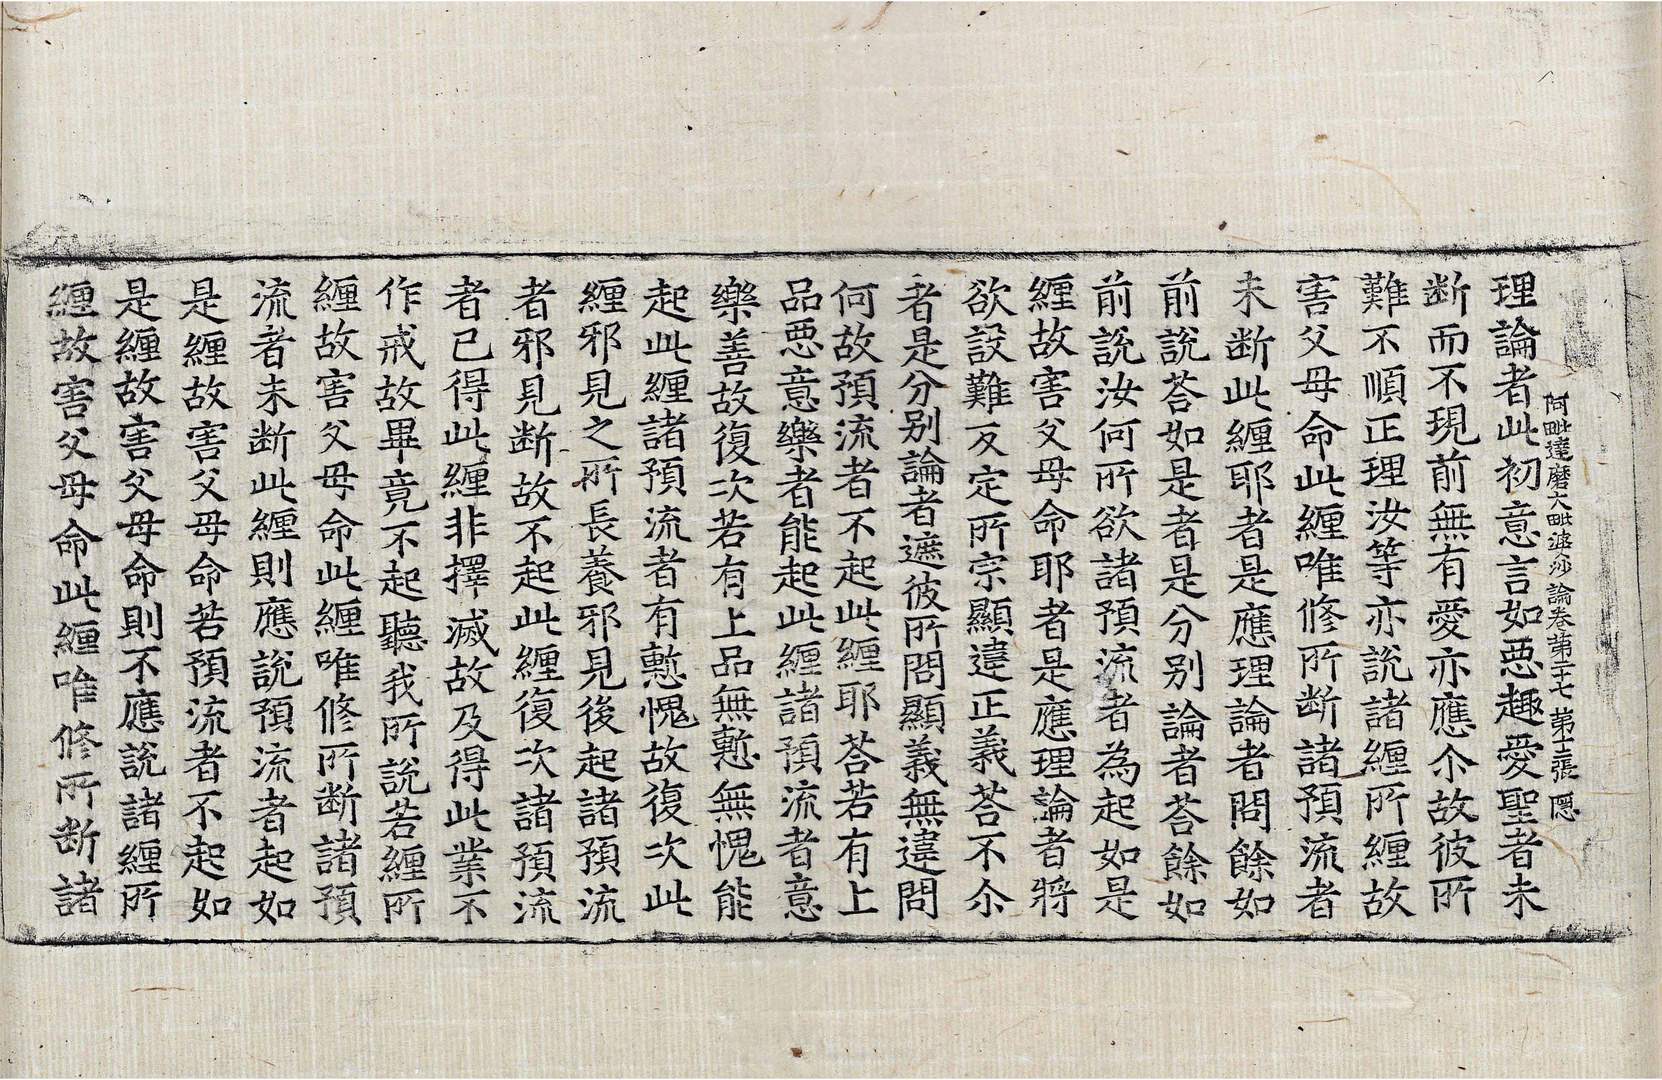 阿毗達磨大毗婆沙論卷第二十七 第十二張 隠
理論者此初意言如惡趣愛聖者未
断而不現前無有愛亦應尒故彼所
難不順正理汝等亦說諸纏所纏故
害父母命此纏唯修所断諸預流者
未断此纏耶者是應理論者問餘如
前說荅如是者是分别論者荅餘如
前說汝何所欲諸預流者為起如是
纏故害父母命耶者是應理論者將
欲設難反定所宗顯違正義荅不尒
者是分别論者遮彼所問顯義無違問
何故預流者不起此纏耶荅若有上
品惡意樂者能起此纏諸預流者意
樂善故復次若有上品無慙無愧能
起此纏諸預流者有慙愧故復次此
纏邪見之所長養邪見後起諸預流
者邪見断故不起此纏復次諸預流
者已得此纏非擇滅故及得此業不
作戒故畢竟不起聽我所說若纏所
纏故害父母命此纏唯修所断諸預
流者未断此纏則應說預流者起如
是纏故害父母命若預流者不起如
是纏故害父母命則不應說諸纏所
纏故害父母命此纏唯修所断諸